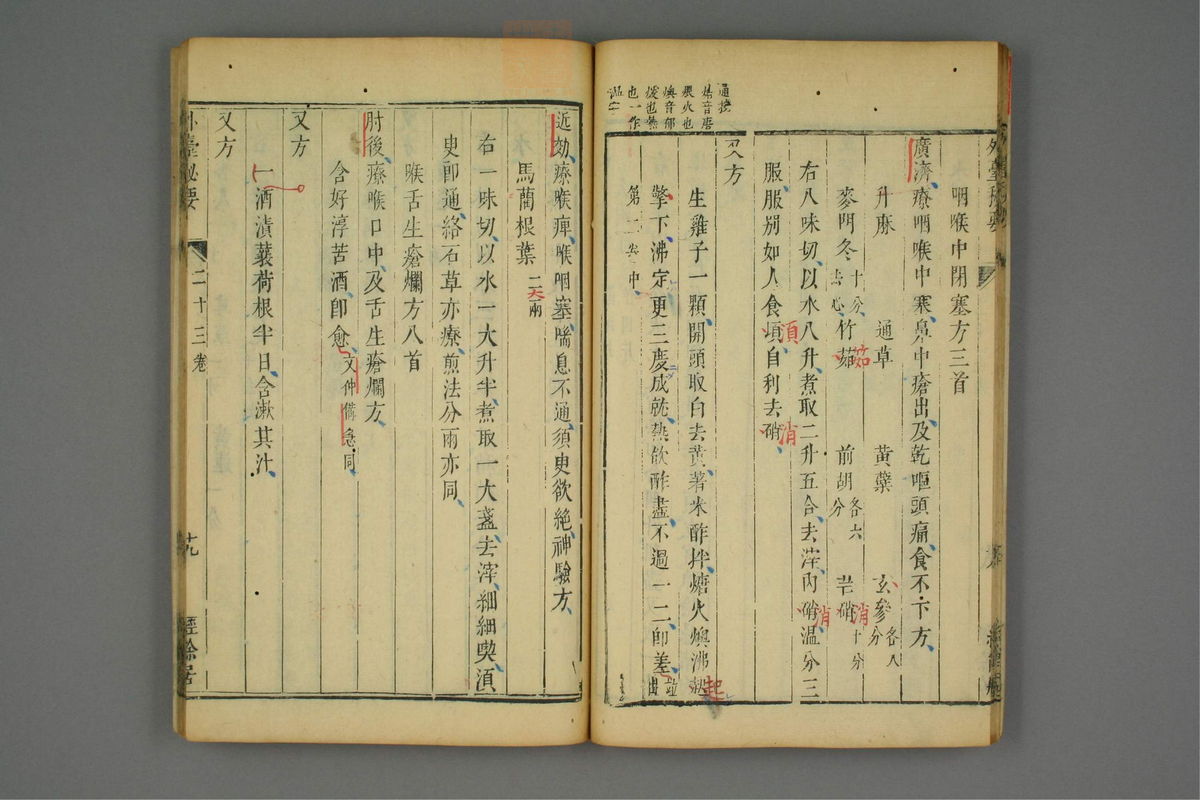 咽喉中閉塞方三首
廣濟療咽喉中塞鼻中瘡出及乾嘔頭痛食不下方
升麻 通草 黃蘗 玄參各八分
麥門冬十分去心 竹茹 前胡各六分 芒硝消十分
右八味切以水八升煮取二升五合去滓內硝消溫分三
服服別如人食頃自利去硝消
又方
生雞子一顆開頭取白去黃著米酢拌煻火煨沸起
擎下沸定更三度成就熱飲酢盡不過一二即差並出
第二卷中
通接
煻音唐
煨火也
燠音郁
煖也熱
也一作
溫
近効療喉痺喉咽塞喘息不通須臾欲絕神驗方
馬藺根葉二大兩
右一味切以水一大升半煮取一大盞去滓細細喫須
臾即通絡石草亦療煎法分兩亦同
喉舌生瘡爛方八首
肘後療喉口中及舌生瘡爛方
含好淳苦酒即愈文仲備急同
又方
酒漬蘘荷根半日含漱其汁
又方
外臺秘要 二十三卷 十九 經餘居